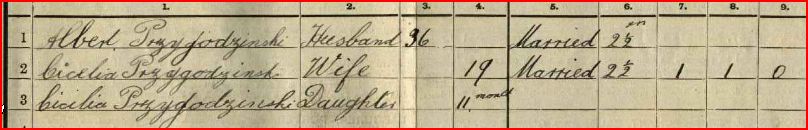 1. 2. 3. 4. 5. 6. 7. 8. 9.
1 Albert Przygodzinski Husband 36 Married 2½ yrs
2 Cicelia Przygodzinski Wife 19 Married 2½ 1 1 0
3 Cicilia Przygodzinski Daughter 11 months